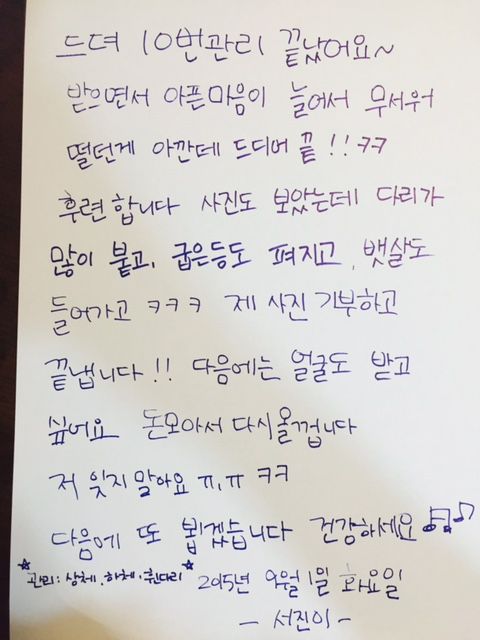 드뎌 10번관리 끝났어요~
받으면서 아픈마음이 늘어서 무서워
떨던게 아깐데 드디어 끝!! ㅋㅋ
후련합니다 사진도 보았는데 다리가
많이 붙고, 굽은등도 펴지고, 뱃살도
들어가고 ㅋㅋㅋ 제 사진 기부하고
끝냅니다!! 다음에는 얼굴도 받고
싶어요 돈모아서 다시올껍니다
저 잊지 말아요 ㅠ,ㅠ ㅋㅋ
다음에 또 뵙겠습니다 건강하세요
관리: 상체.하체.휜다리 2015년 9월 1일 화요일
- 서진이 -